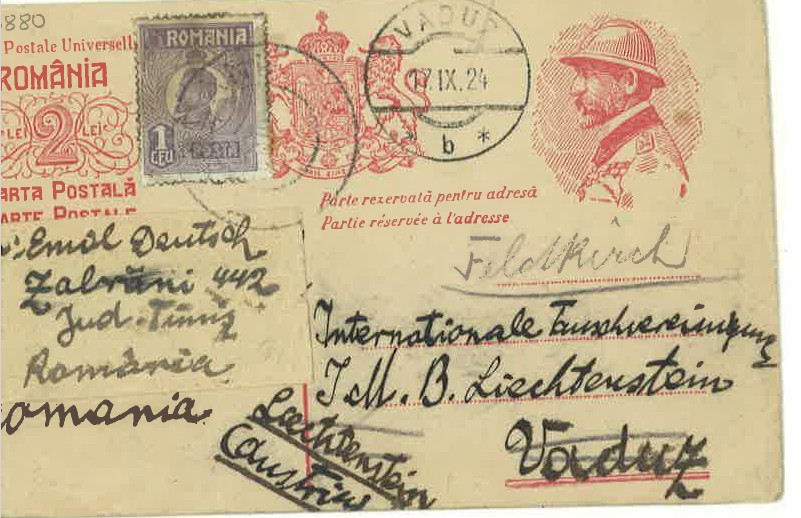 880
Postale Universell
ROMÂNIA
LEI 2 LEI
ARTA POSTALĂ
ARTE POSTALE
ROMANIA
1 LEU
POSTA
VADUZ
17.IX.24
* b *
Parte rezervată pentru adresă
Partie réservée à l'adresse
Emil Deutsch
Zabrani 442
Jud. Timiș
România
omania
Feldkirch
Internationale Tauschvereinigung
I.M.B. Liechtenstein
Vaduz
Liechtenstein
(Austria